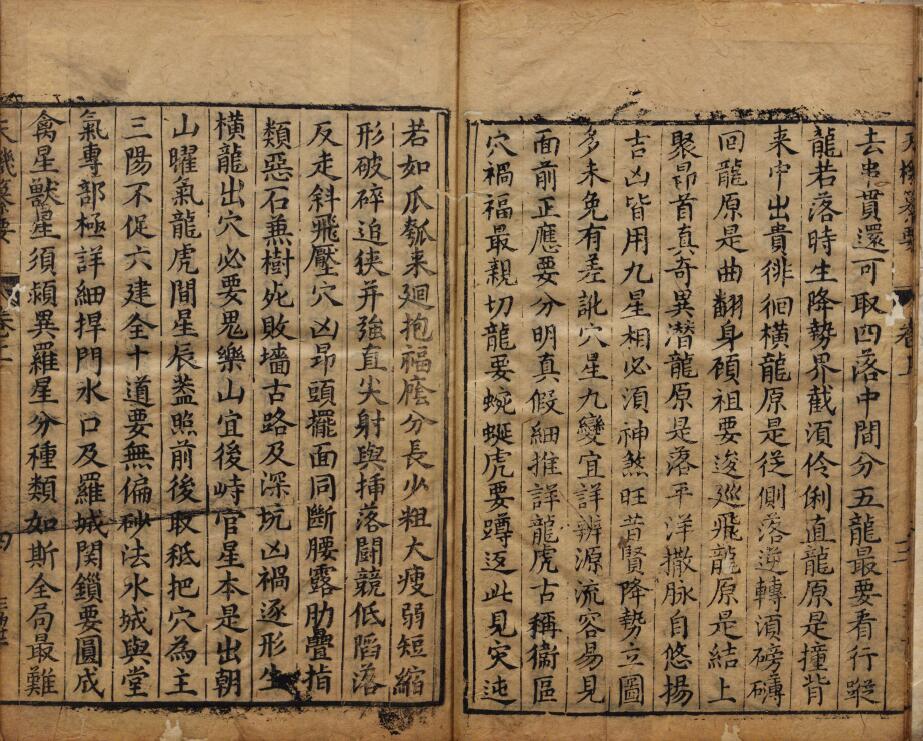 去患貫還可取四落中間分五龍最要看行蹤
龍若落時生降勢界截湏伶俐直龍原是撞背
来中出貴徘徊橫龍原是従側落逆轉湏磅礴
回龍原是曲翻身碩祖要逡巡飛龍原是結上
聚昂首真奇異潜龍原是落平洋撒脉自悠揚
吉凶皆用九星相必湏神煞旺昔賢降勢立圖
多未免有差訛穴星九變宜詳辨源流容易見
面前正應要分明真假細推詳龍虎古稱衞區
穴禍福最親切龍要蜿蜒虎要蹲返此見灾迍
若如瓜瓠来廻抱福廕分長少粗大瘦弱短縮
形破碎迫狹并強直尖射與揷落闘競低陷落
反走斜飛壓穴凶昂頭擺面同斷腰露肋疊指
類惡石兼樹死敗墻古路及深坑凶禍逐形生
橫龍出穴必要鬼樂山宜後峙官星本是出朝
山曜氣龍虎間星辰盖照前後取秪把穴為主
三陽不促六建全十道要無偏砂法水城與堂
氣專部極詳細捍門水口及羅城関鎖要圓成
禽星獸星須頴異羅星分種類如斯全局最難